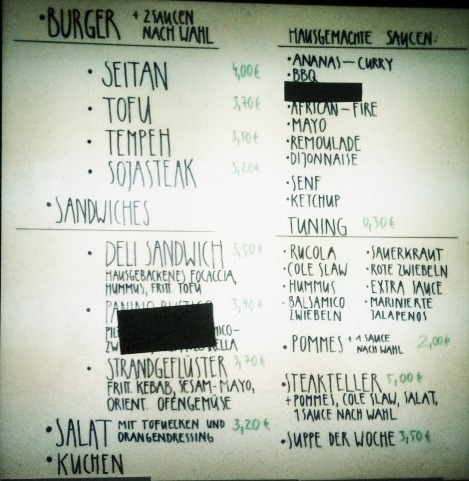 • BURGER + 2 SAUCEN
NACH WAHL
• SEITAN 4,00€
• TOFU 3,70€
• TEMPEH
• SOJASTEAK 3,20€
• SANDWICHES
• DELI SANDWICH 3,50€
HAUSGEBACKENES FOCACCIA,
HUMMUS, FRITT. TOFU
• PANINO 3,90€
• STRANDGEFLÜSTER 3,70€
FRITT. KEBAB, SESAM-MAYO,
ORIENT. OFENGEMÜSE
• SALAT MIT TOFUECKEN UND 3,20€
ORANGENDRESSING
• KUCHEN
HAUSGEMACHTE SAUCEN:
• ANANAS-CURRY
• BBQ
• AFRICAN-FIRE
• MAYO
• REMOULADE
• DIJONNAISE
• SENF
• KETCHUP
TUNING 0,30€
• RUCOLA
• COLE SLAW
• HUMMUS
• BALSAMICO
ZWIEBELN
• SAUERKRAUT
• ROTE ZWIEBELN
• EXTRA SAUCE
• MARINIERTE
JALAPENOS
• POMMES + 1 SAUCE 2,00€
NACH WAHL
• STEAKTELLER 5,00€
+ POMMES, COLE SLAW, SALAT,
1 SAUCE NACH WAHL
• SUPPE DER WOCHE 3,50€